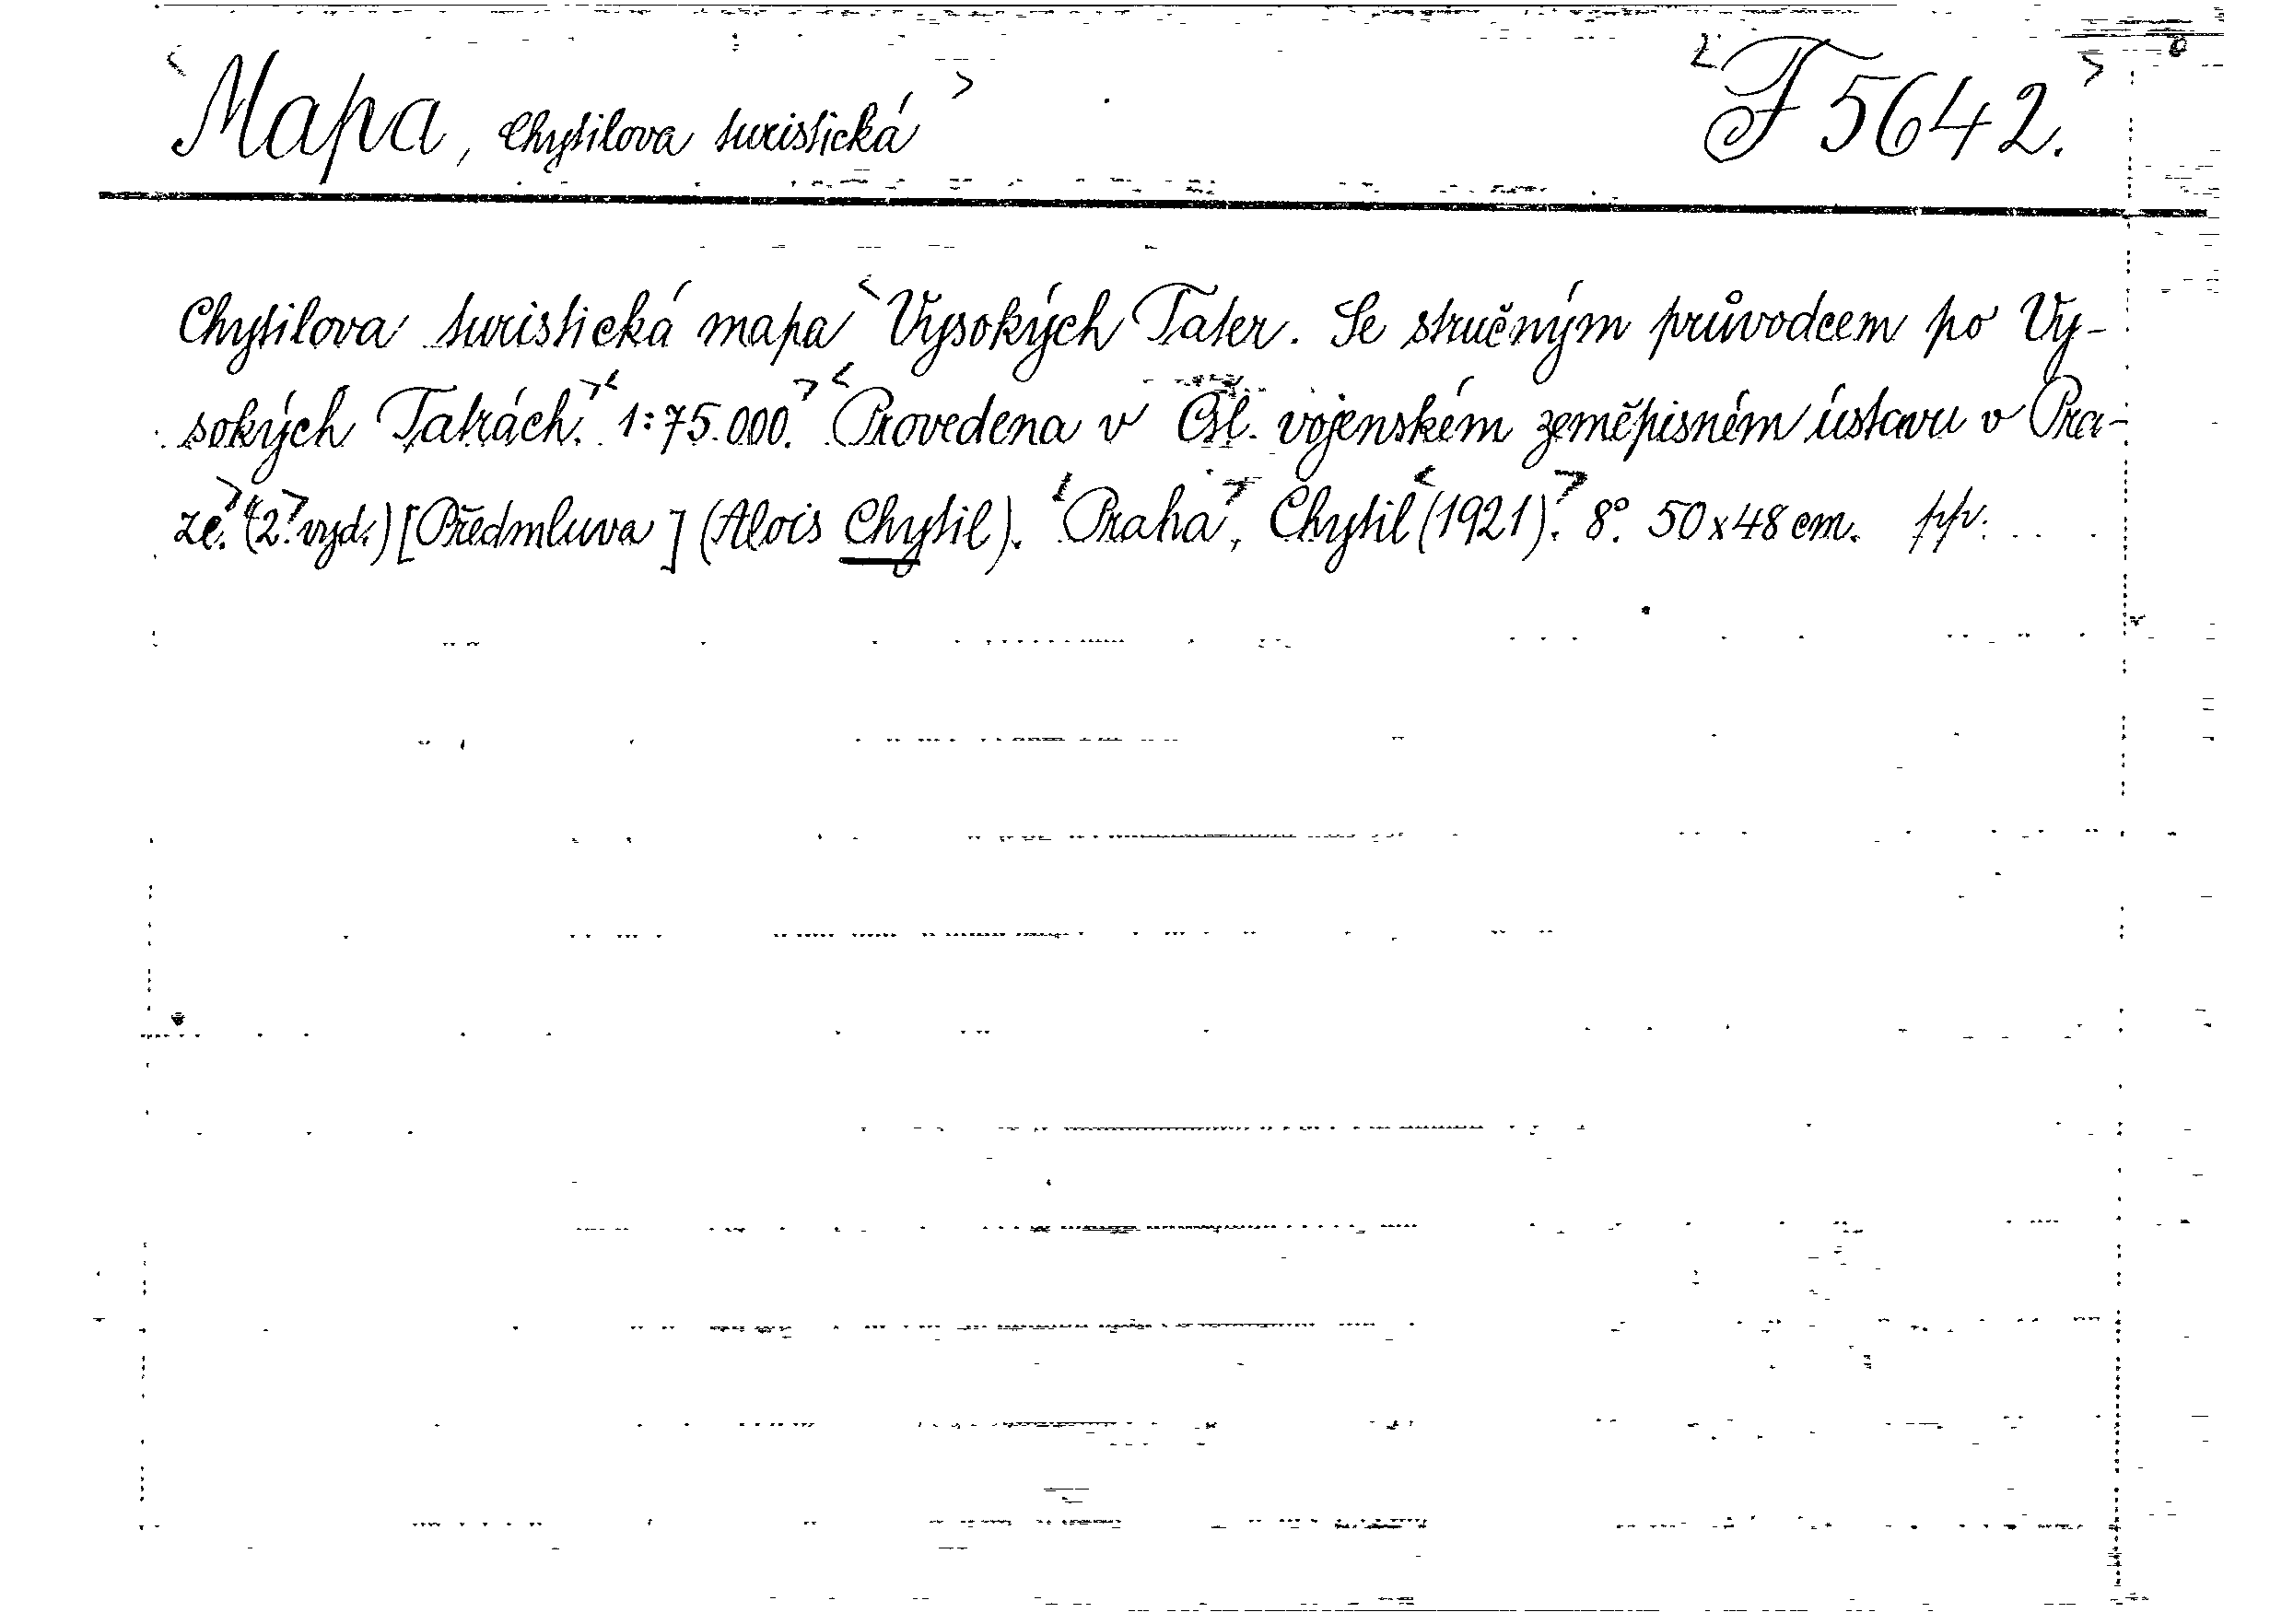 Mapa, Chytilova turistická F 5642.
Chytilova turistická mapa Vysokých Tater. Se stručným průvodcem po Vy-
sokých Tatrách. 1:75.000. Provedena v Čsl. vojenském zeměpisném ústavu v Pra-
ze. (2. vyd.) [Předmluva] (Alois Chytil). Praha, Chytil (1921). 8°. 50x48 cm. pp.